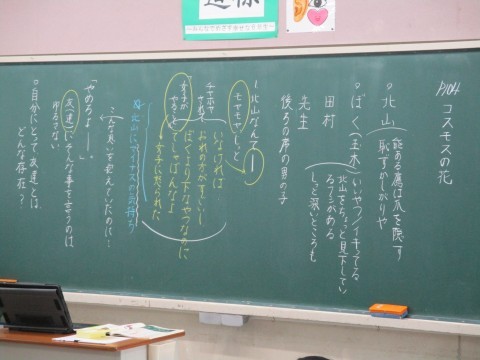 道徳
P104 コスモスの花
北山
能ある鷹は爪を隠す
恥ずかしがりや
ぼく(玉木)
いいやつ/イキってる
北山をちょっと見下してい
るフシがある
しっと深いところも
田村
先生
後ろの席の男の子
北山なんてー
モヤモヤ しっと
いなければ
おれの方がすごいし
ぼくより下なやつなのに
でしゃばんなよ
チヤホヤ
されて
女子が
やるな
女子に怒られた
対 北山にマイナスの気持ち
「やめろよー。」
こんな思いを抱えていたのに…
友達にそんな事を言うのは
ゆるせない
自分にとって友達とは
どんな存在?